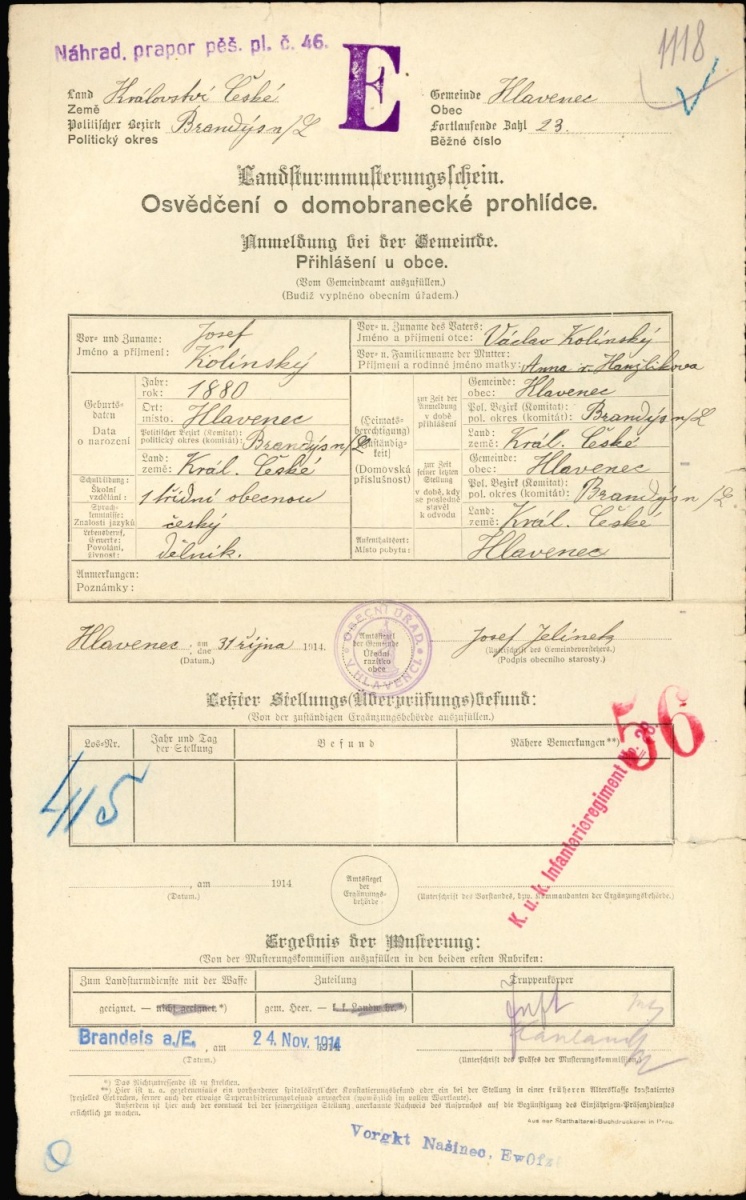 Náhrad. prapor pěš. pl. č. 46.
E
1118
Land Království České
Země
Politischer Bezirk Brandýs n/L
Politický okres
Gemeinde Hlavenec
Obec
Fortlaufende Zahl 23.
Běžné číslo
Landsturmmusterungsschein.
Osvědčení o domobranecké prohlídce.
Anmeldung bei der Gemeinde.
Přihlášení u obce.
(Vom Gemeindeamt auszufüllen.)
(Budiž vyplněno obecním úřadem.)
Vor- und Zuname: Josef
Jméno a příjmení: Kolínský
Vor- u. Zuname des Vaters:
Jméno a příjmení otce: Václav Kolínský
Vor- u. Familienname der Mutter:
Příjmení a rodinné jméno matky: Anna r. Hanzlikova
Geburtsdaten
Data o narození
Jahr:
rok: 1880
Ort:
místo: Hlavenec
Politischer Bezirk (Komitat):
politický okres (komitát): Brandýs n/L
Land:
země: Král. České
(Heimatsberechtigung)
(Zuständigkeit)
(Domovská příslušnost)
zur Zeit der Anmeldung
v době přihlášení
Gemeinde:
obec: Hlavenec
Pol. Bezirk (Komitat):
pol. okres (komitát): Brandýs n/L
Land:
země: Král. České
zur Zeit seiner letzten Stellung
v době, kdy se posledně stavěl k odvodu
Gemeinde:
obec: Hlavenec
Pol. Bezirk (Komitat):
pol. okres (komitát): Brandýs n/L.
Land:
země: Král. České
Schulbildung:
Školní vzdělání: 1 třídní obecnou
Sprachkenntnisse:
Znalosti jazyků: český
Lebensberuf, Gewerbe:
Povolání, živnost: dělník.
Aufenthaltsort:
Místo pobytu: Hlavenec
Anmerkungen:
Poznámky:
Hlavenec am
dne 31 října 1914.
(Datum.)
OBECNÍ ÚŘAD V HLAVENCI
Amtssiegel der Gemeinde
Úřední razítko obce
Josef Jelínek
(Unterschrift des Gemeindevorstehers.)
(Podpis obecního starosty.)
Letzter Stellungs(Überprüfungs)befund:
(Von der zuständigen Ergänzungsbehörde auszufüllen.)
56
Los-Nr.
Jahr und Tag der Stellung
Befund
Nähere Bemerkungen**)
415
K. u. k. Infanterieregiment No.
, am 1914
(Datum.)
Amtssiegel der Ergänzungsbehörde
(Unterschrift des Vorstandes, bzw. Kommandanten der Ergänzungsbehörde.)
Ergebnis der Musterung:
(Von der Musterungskommission auszufüllen in den beiden ersten Rubriken:
Zum Landsturmdienste mit der Waffe
Zuteilung
Truppenkörper
geeignet. — nicht geeignet.*)
gem. Heer. — k. k. Landw. br.*)
Brandeis a./E. , am 24. Nov. 1914
(Datum.)
(Unterschrift des Präses der Musterungskommission.)
*) Das Nichtzutreffende ist zu streichen.
**) Hier ist u. a. gegebenenfalls ein vorhandener spitalsärztlicher Konstatierungsbefund oder ein bei der Stellung in einer früheren Altersklasse konstatiertes
spezielles Gebrechen, ferner auch der etwaige Superarbitrierungsbefund anzugeben (womöglich im vollen Wortlaute).
Außerdem ist hier auch der eventuell bei der seinerzeitigen Stellung anerkannte Nachweis des Anspruches auf die Begünstigung des Einjährigen-Präsenzdienstes
ersichtlich zu machen.
Aus der Statthalterei-Buchdruckerei in Prag.
Vorgkt Našinec,